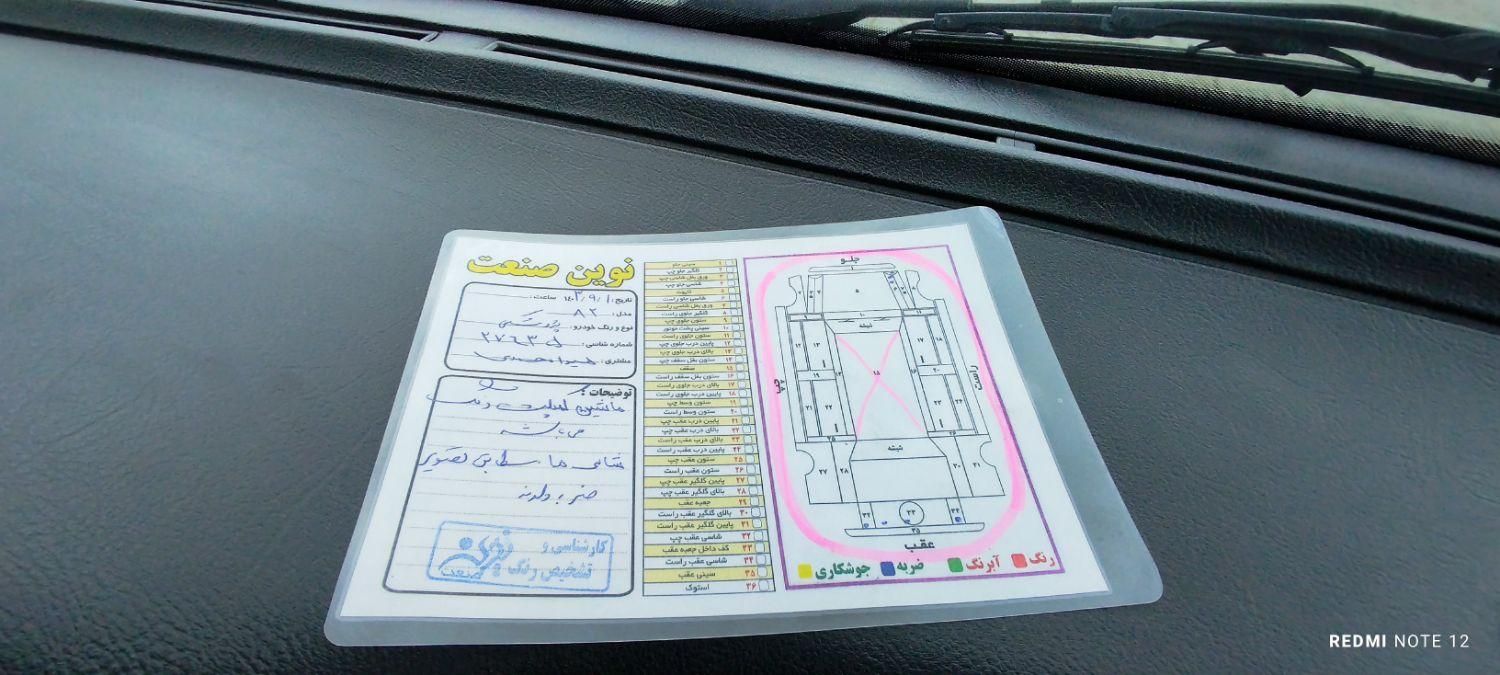 نوین صنعت
تاریخ: ۱۴۰۳/۹/۱ ساعت:
مدل: ۸۲
نوع و رنگ خودرو:
شماره شاسی:
مشتری:
توضیحات:
ماشین
می باشد
شاسی ها مطابق تصویر
ضربه
کارشناسی و
تشخیص رنگ
نوین
صنعت
۱ سینی جلو
۲ گلگیر جلو چپ
۳ ورق بغل شاسی چپ
۴ شاسی جلو چپ
۵ کاپوت
۶ شاسی جلو راست
۷ ورق بغل شاسی راست
۸ گلگیر جلوی راست
۹ ستون جلوی چپ
۱۰ سینی پشت موتور
۱۱ ستون جلوی راست
۱۲ پایین درب جلوی چپ
۱۳ بالای درب جلوی چپ
۱۴ ستون بغل سقف چپ
۱۵ سقف
۱۶ ستون بغل سقف راست
۱۷ بالای درب جلوی راست
۱۸ پایین درب جلوی راست
۱۹ ستون وسط چپ
۲۰ ستون وسط راست
۲۱ پایین درب عقب چپ
۲۲ بالای درب عقب چپ
۲۳ بالای درب عقب راست
۲۴ پایین درب عقب راست
۲۵ ستون عقب چپ
۲۶ ستون عقب راست
۲۷ پایین گلگیر عقب چپ
۲۸ بالای گلگیر عقب چپ
۲۹ جعبه عقب
۳۰ بالای گلگیر عقب راست
۳۱ پایین گلگیر عقب راست
۳۲ شاسی عقب چپ
۳۳ کف داخل جعبه عقب
۳۴ شاسی عقب راست
۳۵ سینی عقب
۳۶ استوک
جلو
شیشه
چپ
راست
شیشه
عقب
رنگ آبرنگ ضربه جوشکاری
REDMI NOTE 12